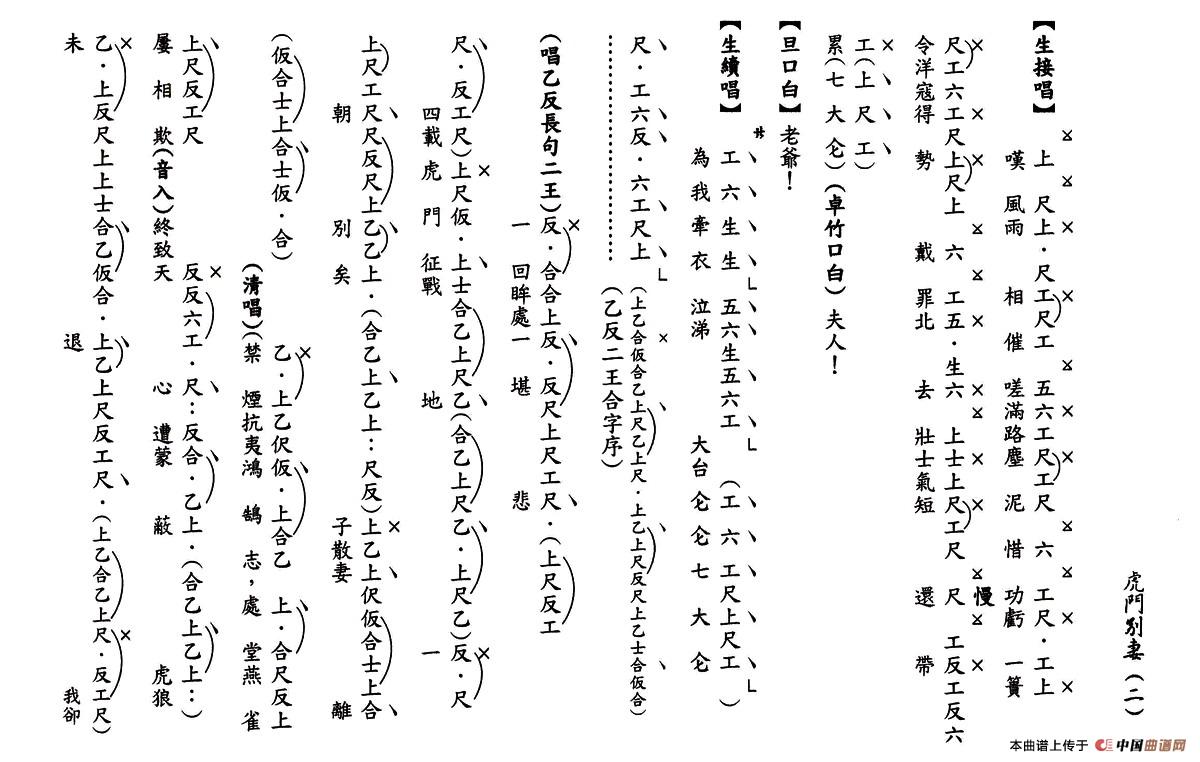 虎門別妻（二）
【生接唱】
上 尺上・尺工尺工 五六工尺工尺 六 工尺・工上
嘆風雨 相催 嗟滿路塵泥惜功虧一簣
尺工六工尺上尺上 六 工五・生六 上士上尺工尺 慢 尺 工反工反六
令洋寇得勢 戴罪北去壯士氣短 還帶
工（上尺工）
累（七大仑）（卓竹口白）夫人！
【旦口白】老爺！
【生續唱】
サ 工六生生 五六生五六工 （工六工尺上尺工）
為我牽衣泣涕 大台仑仑七大仑
尺・工六反・六工尺上 （上乙合仮合乙上尺乙上尺・上乙上尺反尺上乙士合仮合）
（乙反二王合字序）
（唱乙反長句二王）反・合合上反・反尺上尺工尺・（上尺反工
一回眸處一堪悲
尺・反工尺）上尺仮・上士合乙上尺乙（合乙上尺乙・上尺乙）反・尺
四載虎門征戰地 一
上尺工尺尺反尺上乙乙上・（合乙上乙上：尺反）上乙上伬仮合士上合
朝別矣 子散妻離
（仮合士上合士仮・合）
（清唱）（乙・上乙伬仮・上合乙 上・合尺反上
禁煙抗夷鴻鵠志，處堂燕雀
上尺反工尺 反反六工・尺：反合・乙上・（合乙上乙上：）
屢相欺（音入）終致天心遭蒙蔽 虎狼
乙・上反尺上上士合乙仮合・上乙上尺反工尺・（上乙合乙上尺・反工尺）
未退 我卻
本曲谱上传于 中国曲谱网